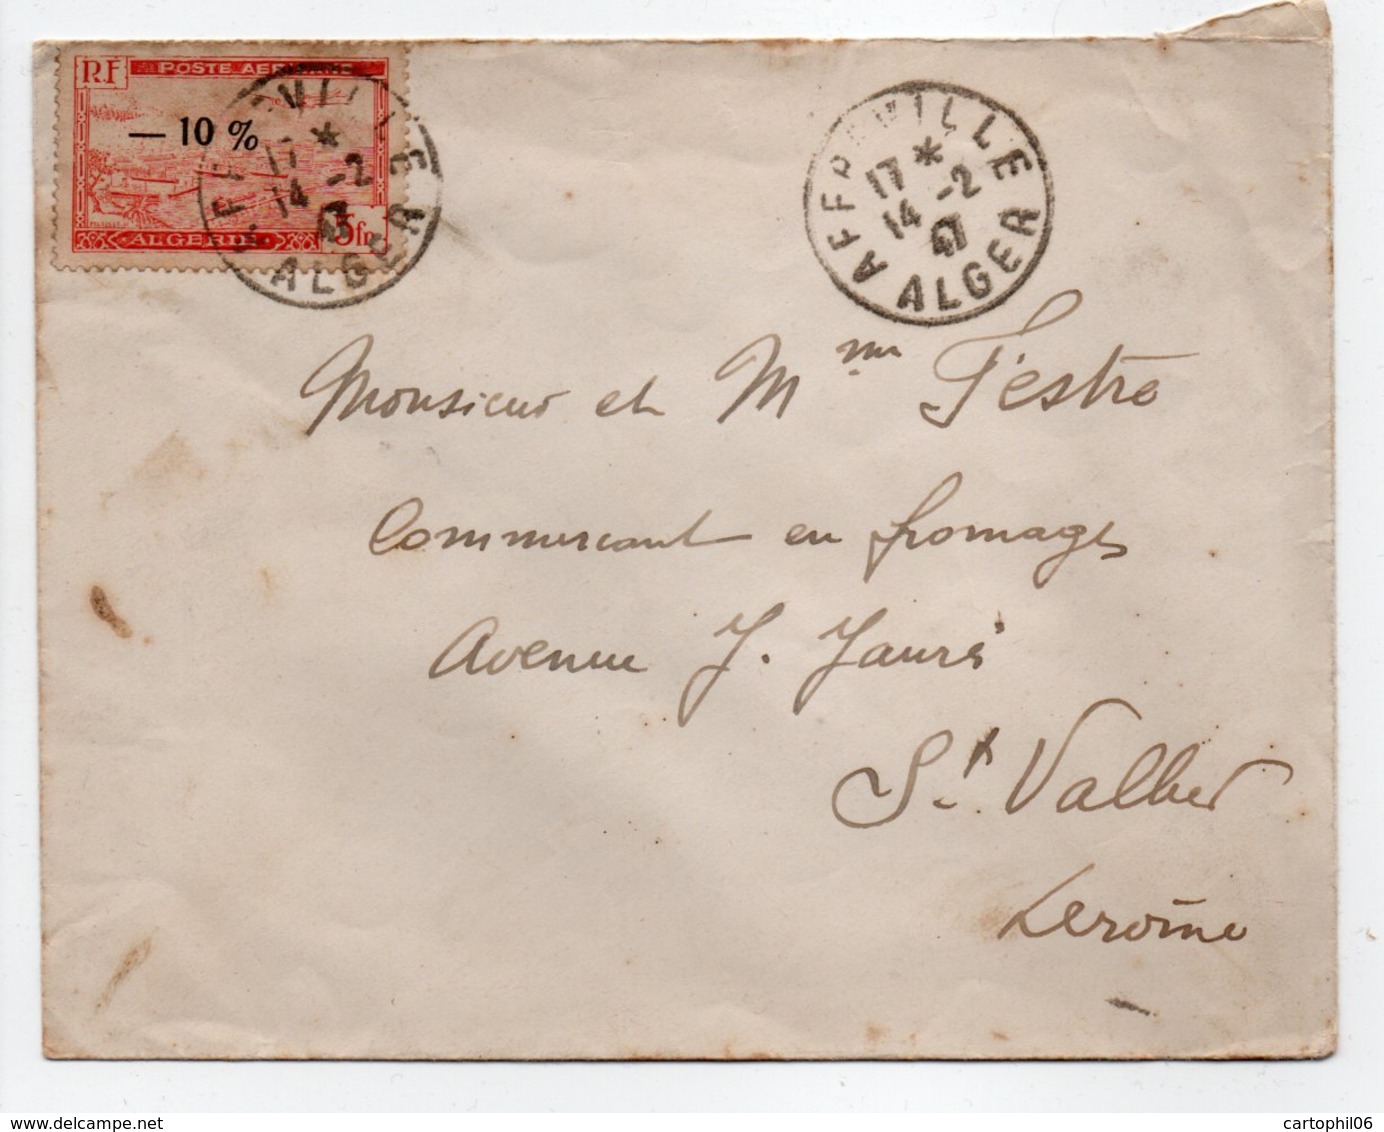 RF POSTE AERIENNE
— 10 %
ALGERIE 5 fr
AFFREVILLE
17 *
14 -2
47
ALGER
AFFREVILLE
17 *
14 -2
47
ALGER
Monsieur et Mme Testre
Commercant en fromages
Avenue J. Jaurès
St. Vallier
cartophil06